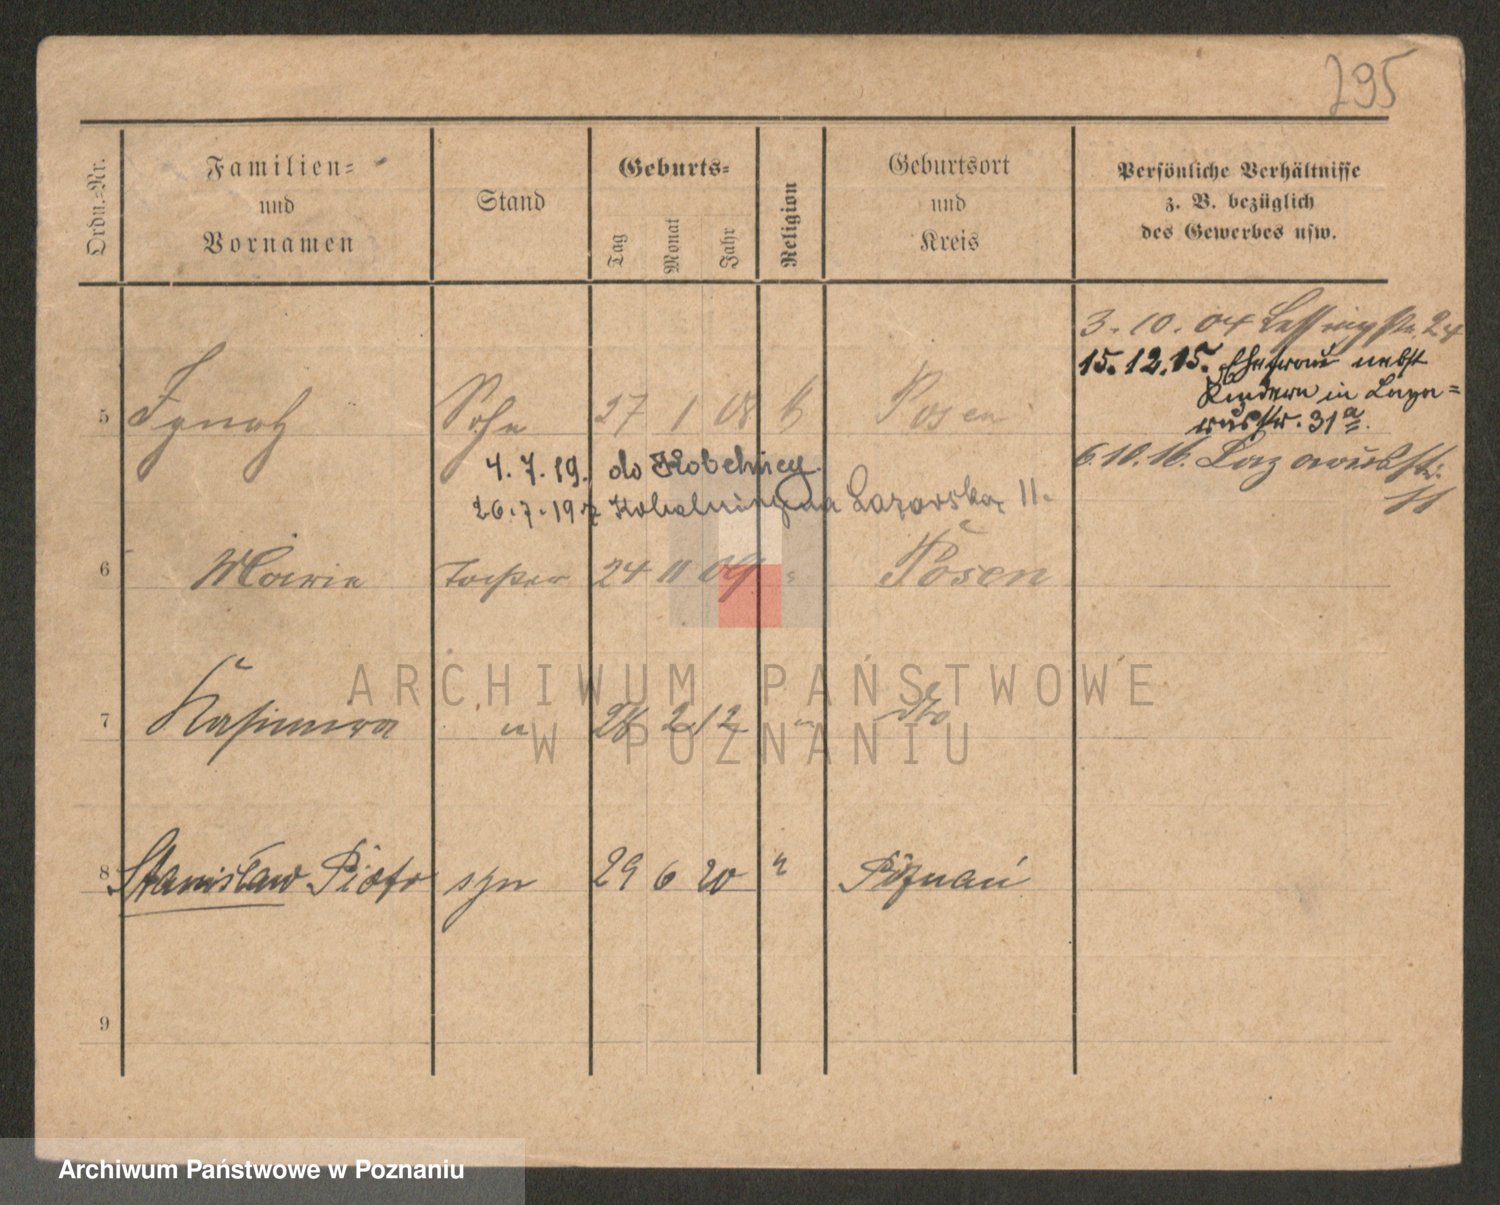 295
Ordn.-Nr.
Familien-
und
Vornamen
Stand
Geburts-
Tag
Monat
Jahr
Religion
Geburtsort
und
Kreis
Persönliche Verhältnisse
z. B. bezüglich
des Gewerbes usw.
3. 10. 04 Lessingstr. 24
15. 12. 15. Ehefrau nebst
Kindern in Laza-
russtr. 31a.
5 Ignatz Sohn 27 1 08 k Posen
6. 10. 16. Lazarusstr.
11
4. 7. 19. do Kobelnicy.
26. 7. 19 z Kobelnicy na Lazarska 11.
6 Marie Tochter 24 11 09 " Posen
ARCHIWUM PAŃSTWOWE
7 Kasimira " 28 2 12 " dto
W POZNANIU
8 Stanisław Piotr syn 29 6 20 " Poznań
9
Archiwum Państwowe w Poznaniu